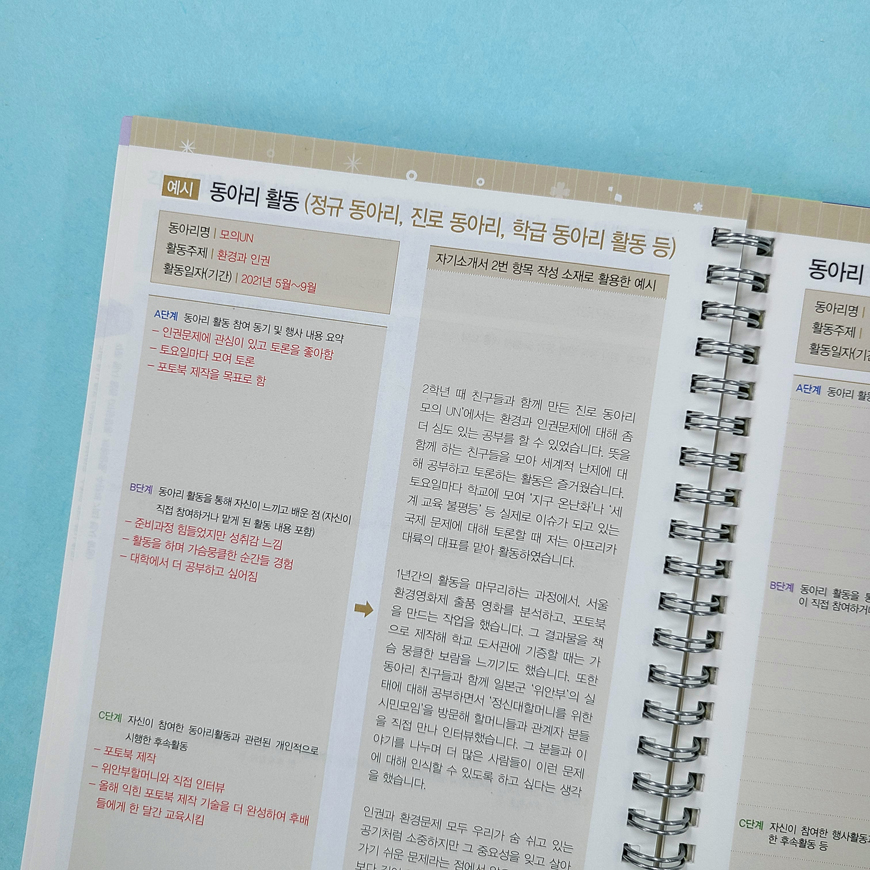 예시 동아리 활동 (정규 동아리, 진로 동아리, 학급 동아리 활동 등)
동아리명 | 모의UN
활동주제 | 환경과 인권
활동일자(기간) | 2021년 5월~9월
A단계 동아리 활동 참여 동기 및 행사 내용 요약
– 인권문제에 관심이 있고 토론을 좋아함
– 토요일마다 모여 토론
– 포토북 제작을 목표로 함
B단계 동아리 활동을 통해 자신이 느끼고 배운 점 (자신이
직접 참여하거나 맡게 된 활동 내용 포함)
– 준비과정 힘들었지만 성취감 느낌
– 활동을 하며 가슴뭉클한 순간들 경험
– 대학에서 더 공부하고 싶어짐
C단계 자신이 참여한 동아리활동과 관련된 개인적으로
시행한 후속활동
– 포토북 제작
– 위안부할머니와 직접 인터뷰
– 올해 익힌 포토북 제작 기술을 더 완성하여 후배
들에게 한 달간 교육시킴
자기소개서 2번 항목 작성 소재로 활용한 예시
2학년 때 친구들과 함께 만든 진로 동아리
모의 UN'에서는 환경과 인권문제에 대해 좀
더 심도 있는 공부를 할 수 있었습니다. 뜻을
함께 하는 친구들을 모아 세계적 난제에 대
해 공부하고 토론하는 활동은 즐거웠습니다.
토요일마다 학교에 모여 '지구 온난화'나 '세
계 교육 불평등' 등 실제로 이슈가 되고 있는
국제 문제에 대해 토론할 때 저는 아프리카
대륙의 대표를 맡아 활동하였습니다.
1년간의 활동을 마무리하는 과정에서, 서울
환경영화제 출품 영화를 분석하고, 포토북
을 만드는 작업을 했습니다. 그 결과물을 책
으로 제작해 학교 도서관에 기증할 때는 가
슴 뭉클한 보람을 느끼기도 했습니다. 또한
동아리 친구들과 함께 일본군 '위안부'의 실
태에 대해 공부하면서 '정신대할머니를 위한
시민모임'을 방문해 할머니들과 관계자 분들
을 직접 만나 인터뷰했습니다. 그 분들과 이
야기를 나누며 더 많은 사람들이 이런 문제
에 대해 인식할 수 있도록 하고 싶다는 생각
을 했습니다.
인권과 환경문제 모두 우리가 숨 쉬고 있는
공기처럼 소중하지만 그 중요성을 잊고 살아
가기 쉬운 문제라는 점에서
동아리
동아리명 |
활동주제 |
활동일자(기간
A단계 동아리 활동
B단계 동아리 활동을 통
이 직접 참여하거나
C단계 자신이 참여한 행사활동과
한 후속활동 등